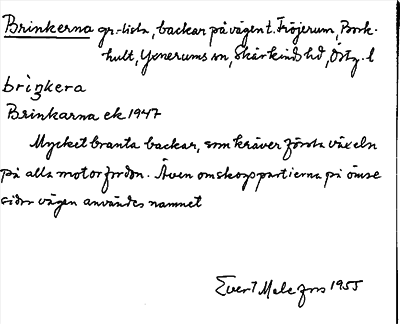 Brinkerna gr.-lista, backar på vägen t. Fröjerum, Bork-
hult, Yxnerums sn, Skärkinds hd, Östg. l
briŋkera
Brinkarna ek 1947
Mycket branta backar, som kräver första växeln
på alla motorfordon. Även om skogspartierna på ömse
sidor vägen användes namnet
Evert Melefors 1955